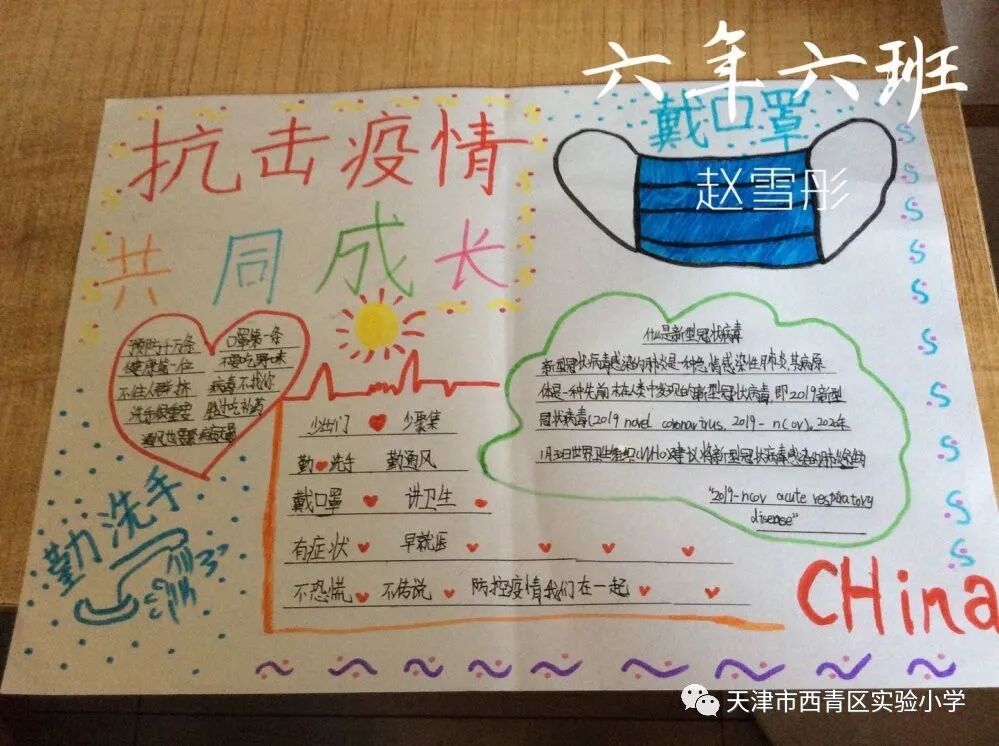 六年六班
戴口罩
赵雪彤
抗击疫情
共同成长
预防十万条 口罩第一条
健康第一位 不要吃野味
不往人群挤 病毒不找你
洗手很重要 胜过吃补药
通风也要
什是新型冠状病毒
新型冠状病毒感染的肺炎是一种急情感染性肺炎,其病原
体是一种先前未在人类中发现的新型冠状病毒,即2019新型
冠状病毒(2019 novel coronavirus, 2019-nCov)。2020年
1月30日世界卫生组织(WHO)建议将新型冠状病毒感染的肺炎
"2019-ncov acute respiratory
disease"
少出门 少聚集
勤洗手 勤通风
戴口罩 讲卫生
有症状 早就医
不恐慌 不传说 防控疫情我们在一起
勤洗手
CHina
天津市西青区实验小学